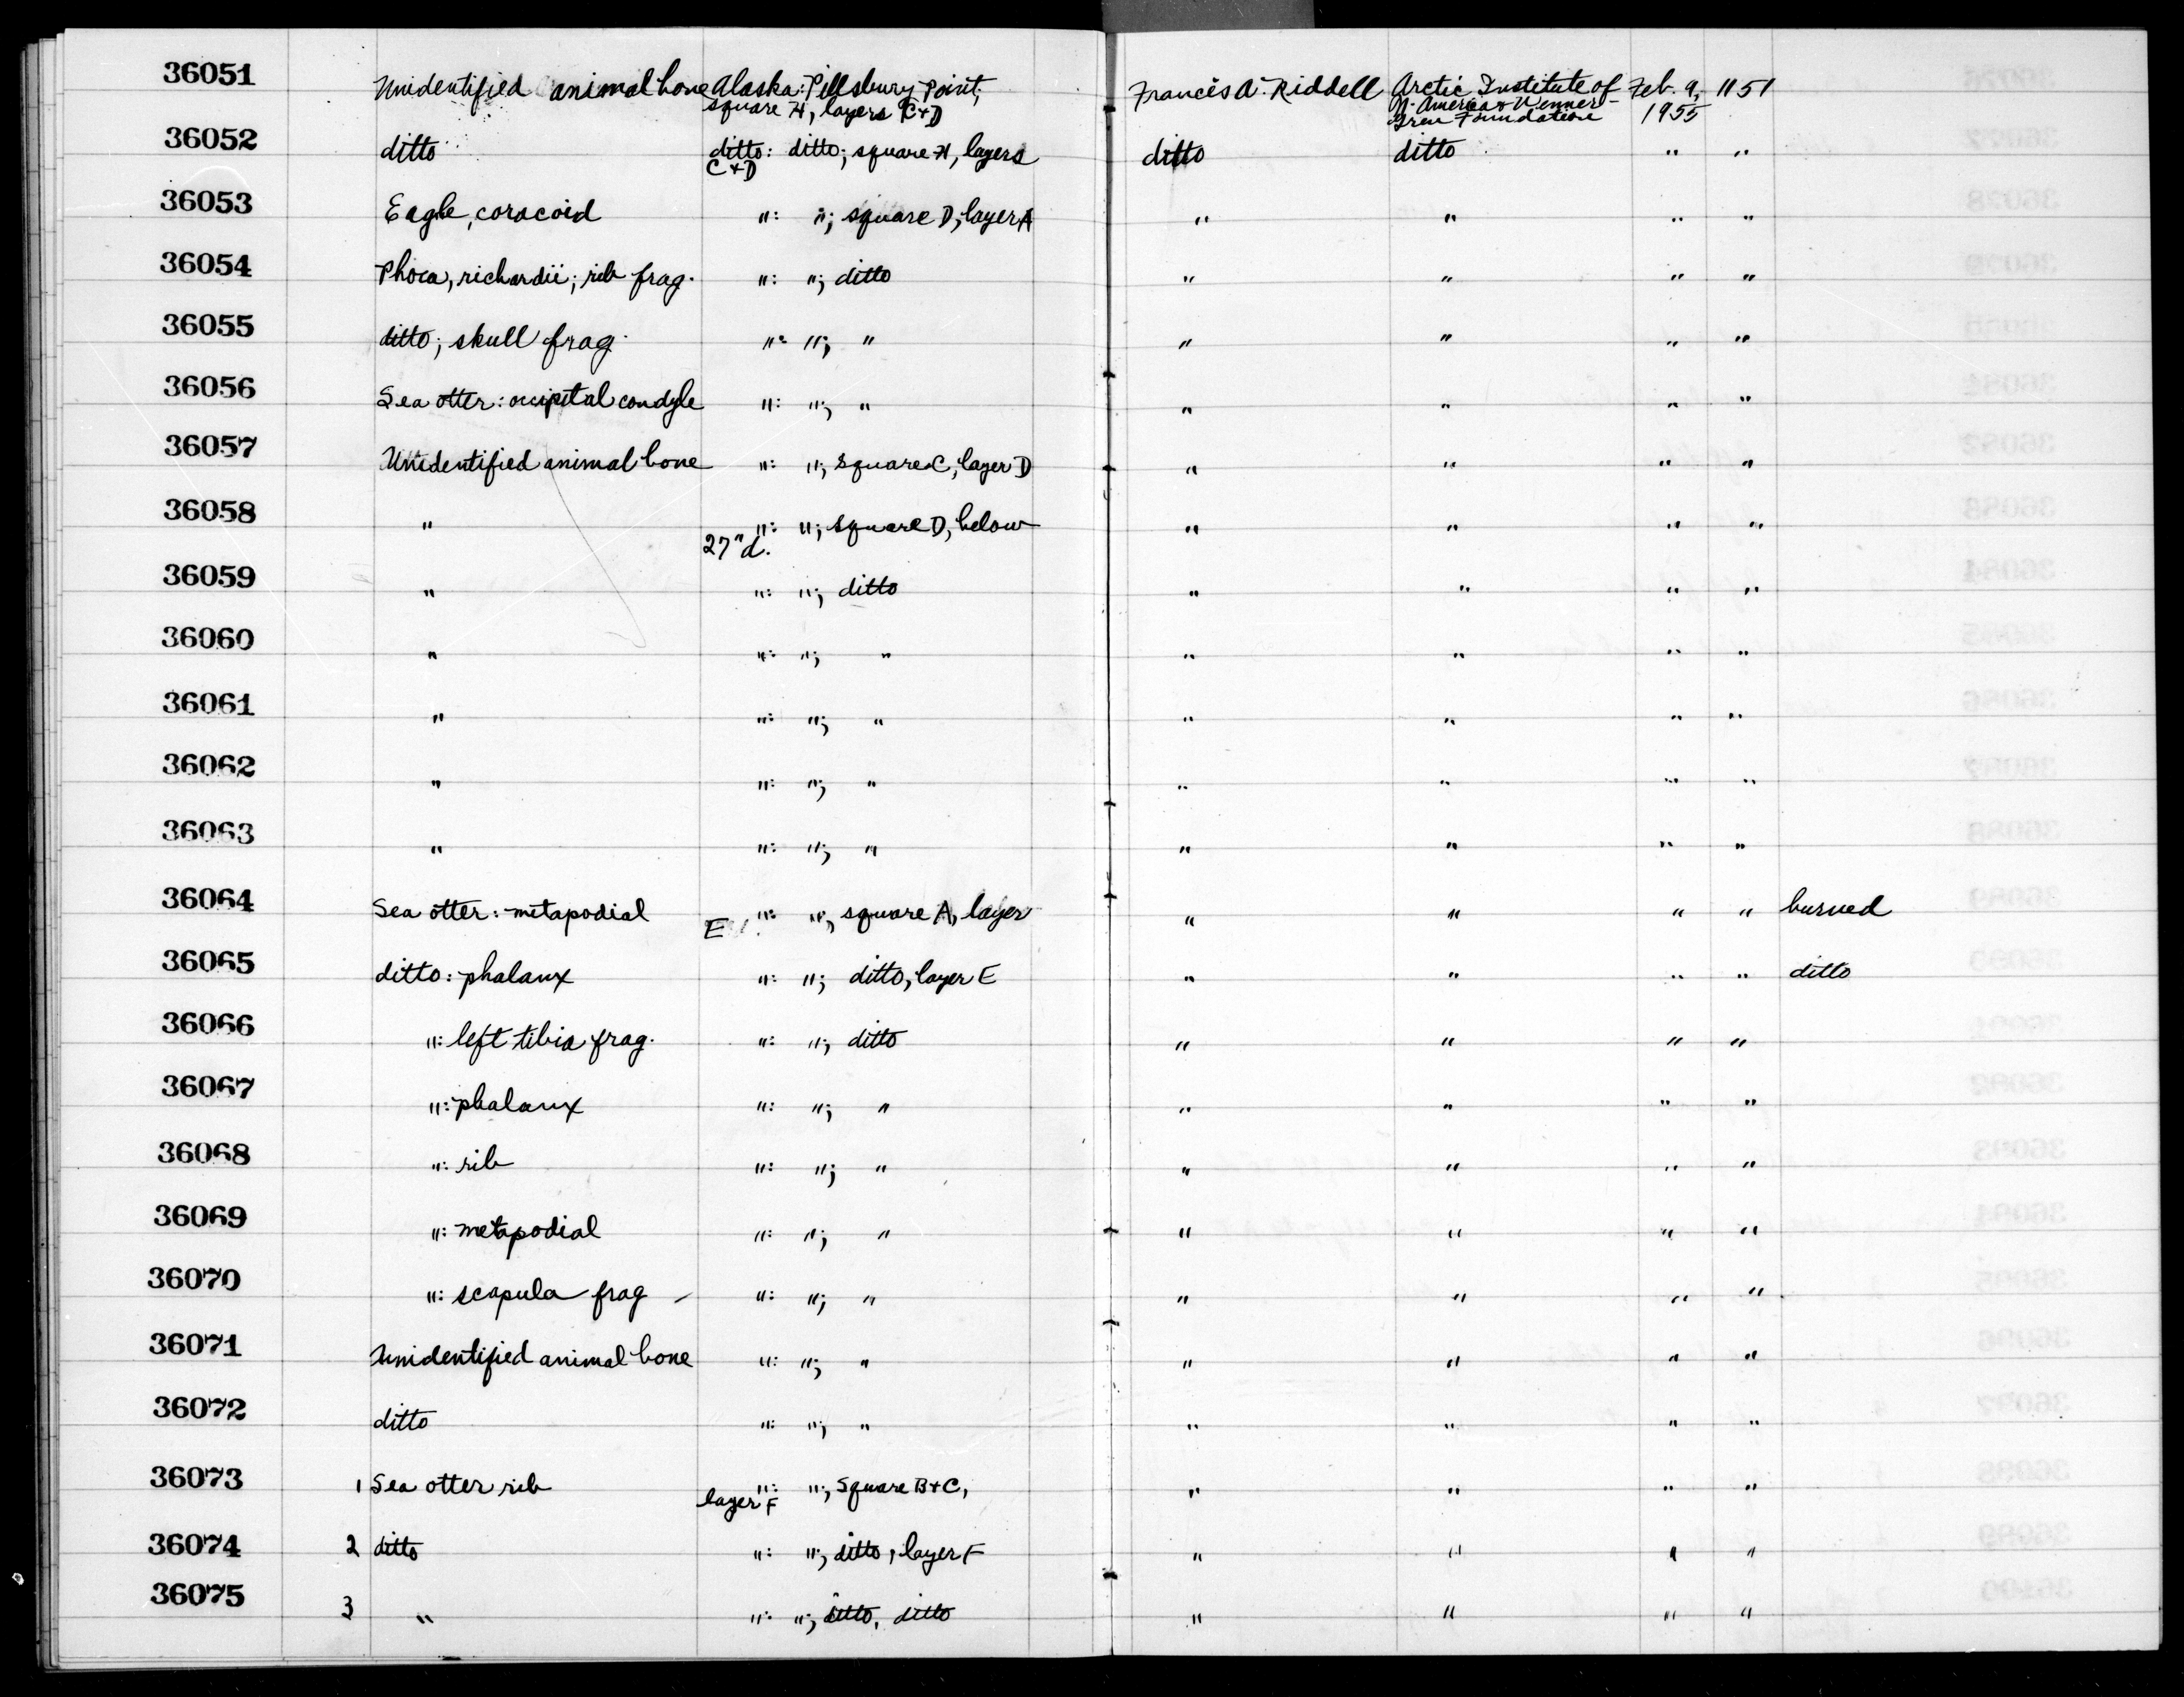 36051 Unidentified animal bone Alaska: Pillsbury Point; Francis A. Riddell Arctic Institute of Feb. 9, 1151
square H, layers C+D N. America & Wenner-
Gren Foundation 1955
36052 ditto ditto: ditto; square H, layers ditto ditto " "
C+D
36053 Eagle, coracoid ": "; square D, layer A " " " "
36054 Phoca, richardii; rib frag. ": "; ditto " " " "
36055 ditto; skull frag. ": "; " " " " "
36056 Sea otter: occipital condyle ": "; " " " " "
36057 Unidentified animal bone ": "; square C, layer D " " " "
36058 " ": "; square D, below " " " "
27" d.
36059 " ": "; ditto " " " "
36060 " ": "; " " " " "
36061 " ": "; " " " " "
36062 " ": "; " " " " "
36063 " ": "; " " " " "
36064 Sea otter: metapodial ": "; square A, layer " " " " burned
E
36065 ditto: phalanx ": "; ditto, layer E " " " " ditto
36066 ": left tibia frag. ": "; ditto " " " "
36067 ": phalanx ": "; " " " " "
36068 ": rib ": "; " " " " "
36069 ": metapodial ": "; " " " " "
36070 ": scapula frag ": "; " " " " "
36071 Unidentified animal bone ": "; " " " " "
36072 ditto ": "; " " " " "
36073 1 Sea otter rib ": "; Square B+C, " " " "
layer F
36074 2 ditto ": "; ditto, layer F " " " "
36075 3 " ": "; ditto, ditto " " " "